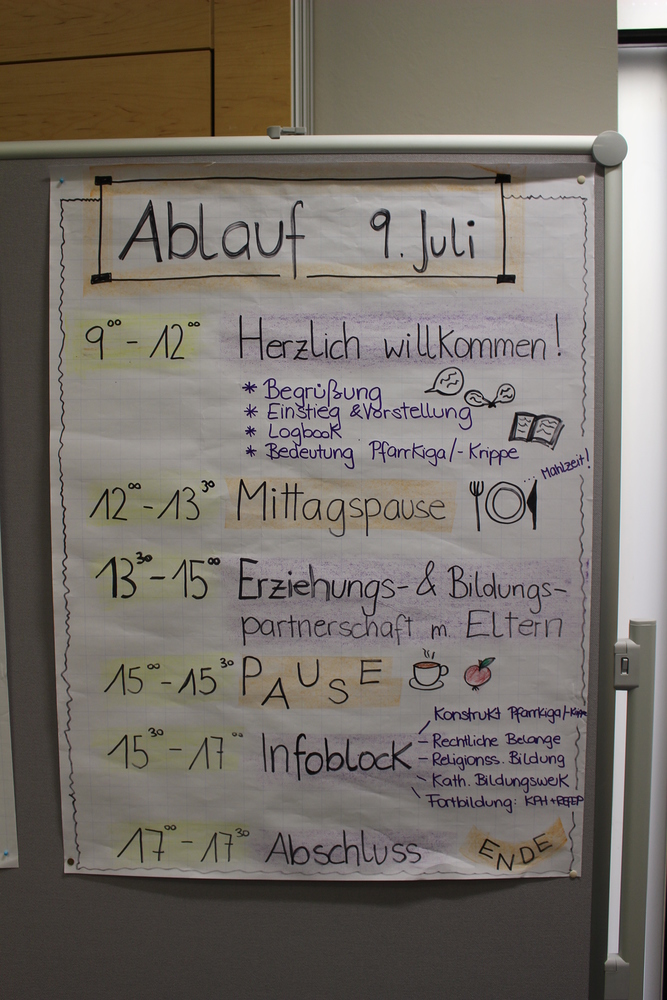 Ablauf 9. Juli
9⁰⁰ - 12⁰⁰ Herzlich willkommen!
* Begrüßung
* Einstieg & Vorstellung
* Logbook
* Bedeutung Pfarrkiga/-Krippe
... Mahlzeit!
12⁰⁰ - 13³⁰ Mittagspause
13³⁰ - 15⁰⁰ Erziehungs- & Bildungs-
partnerschaft m. Eltern
15⁰⁰ - 15³⁰ PAUSE
15³⁰ - 17⁰⁰ Infoblock
Konstrukt Pfarrkiga/-Krippe
- Rechtliche Belange
- Religionss. Bildung
Kath. Bildungswerk
Fortbildung: KPH +
17⁰⁰ - 17³⁰ Abschluss
ENDE